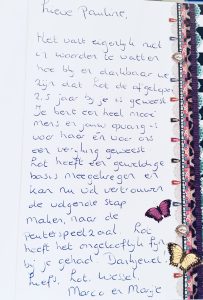 Lieve Pauline,
Het valt eigenlijk niet
in woorden te vatten
hoe blij en dankbaar we
zijn dat Lot de afgelopen
2,5 jaar bij je is geweest
Je bent een heel mooi
mens en jouw opvang is
voor haar en voor ons
een verrijking geweest
Lot heeft een geweldige
basis meegekregen en
kan nu vol vertrouwen
de volgende stap
maken, naar de
peuterspeelzaal. Lot
heeft het ongelooflijk fijn
bij je gehad. Dankjewel.
Liefs, Lot, Wessel,
Marco en Marije